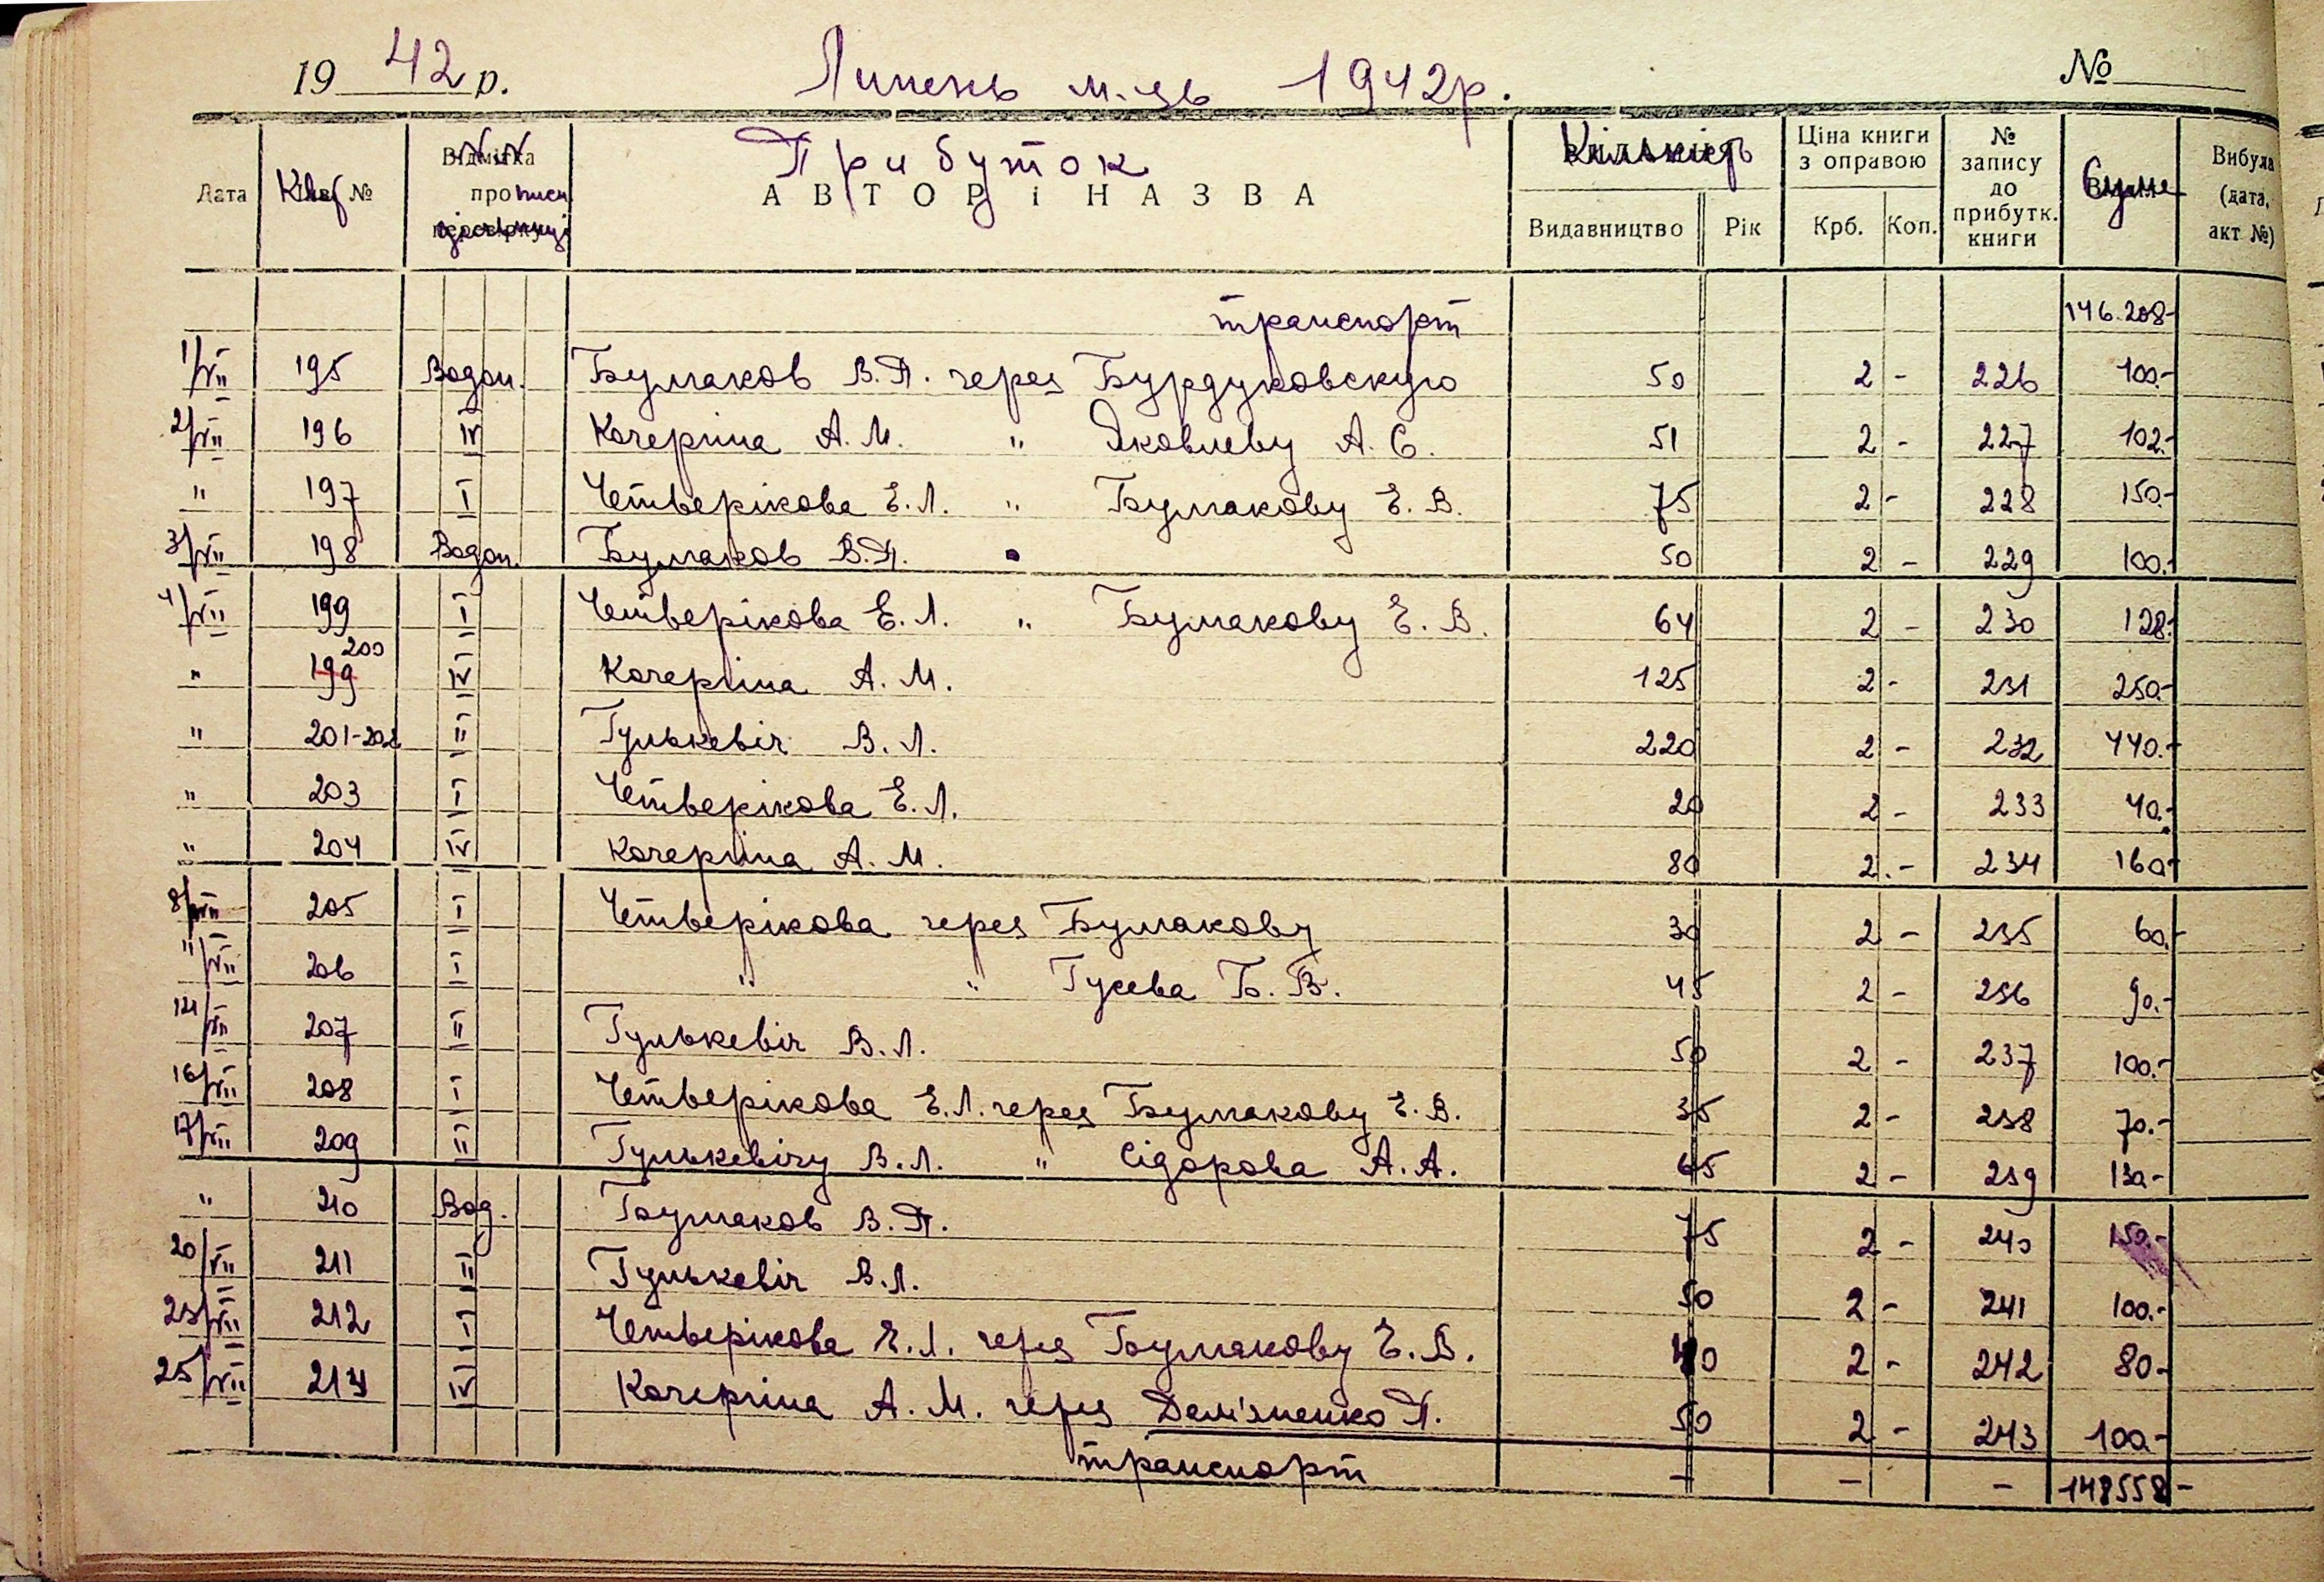 19 42 р. Липень м-ць 1942р. №
Дата Квт № №№ прописи дільниці Прибуток АВТОР і НАЗВА Кількість Видавництво Рік Ціна книги з оправою Крб. Коп. № запису до прибутк. книги Сума Вибула (дата, акт №)
транспорт 146.208-
1/VII 195 Водоп. Бумаков В.П. через Бурдуковскую 50 2 - 226 100.-
2/VII 196 IV Кочергина А.М. " Яковлеву А.С. 51 2 - 227 102.-
" 197 I Четверікова Е.Л. " Бумакову Е.В. 75 2 - 228 150.-
3/VII 198 Водоп. Бумаков В.П. 50 2 - 229 100.-
4/VII 199 I Четверікова Е.Л. " Бумакову Е.В. 64 2 - 230 128.-
" 199 200 IV Кочергина А.М. 125 2 - 231 250.-
" 201-202 II Гулькевіч В.Л. 220 2 - 232 440.-
" 203 I Четверікова Е.Л. 20 2 - 233 40.-
" 204 IV Кочергина А.М. 80 2.- 234 160-
8/VII 205 I Четверікова через Бумакову 30 2 - 235 60.-
11/VII 206 I " " Гусева Б.В. 45 2 - 236 90.-
14/VII 207 II Гулькевіч В.Л. 50 2 - 237 100.-
16/VII 208 I Четверікова Е.Л. через Бумакову Е.В. 35 2 - 238 70.-
17/VII 209 II Гулькевічу В.Л. " Сідорова А.А. 65 2 - 239 130.-
" 210 Вод. Бумаков В.П. 75 2 - 240 150.-
20/VII 211 II Гулькевіч В.Л. 50 2 - 241 100.-
23/VII 212 I Четверікова Е.Л. через Бумакову Е.В. 40 2 - 242 80-
25/VII 213 IV Кочергина А.М. через П. 50 2 - 243 100.-
транспорт - - - 148558-